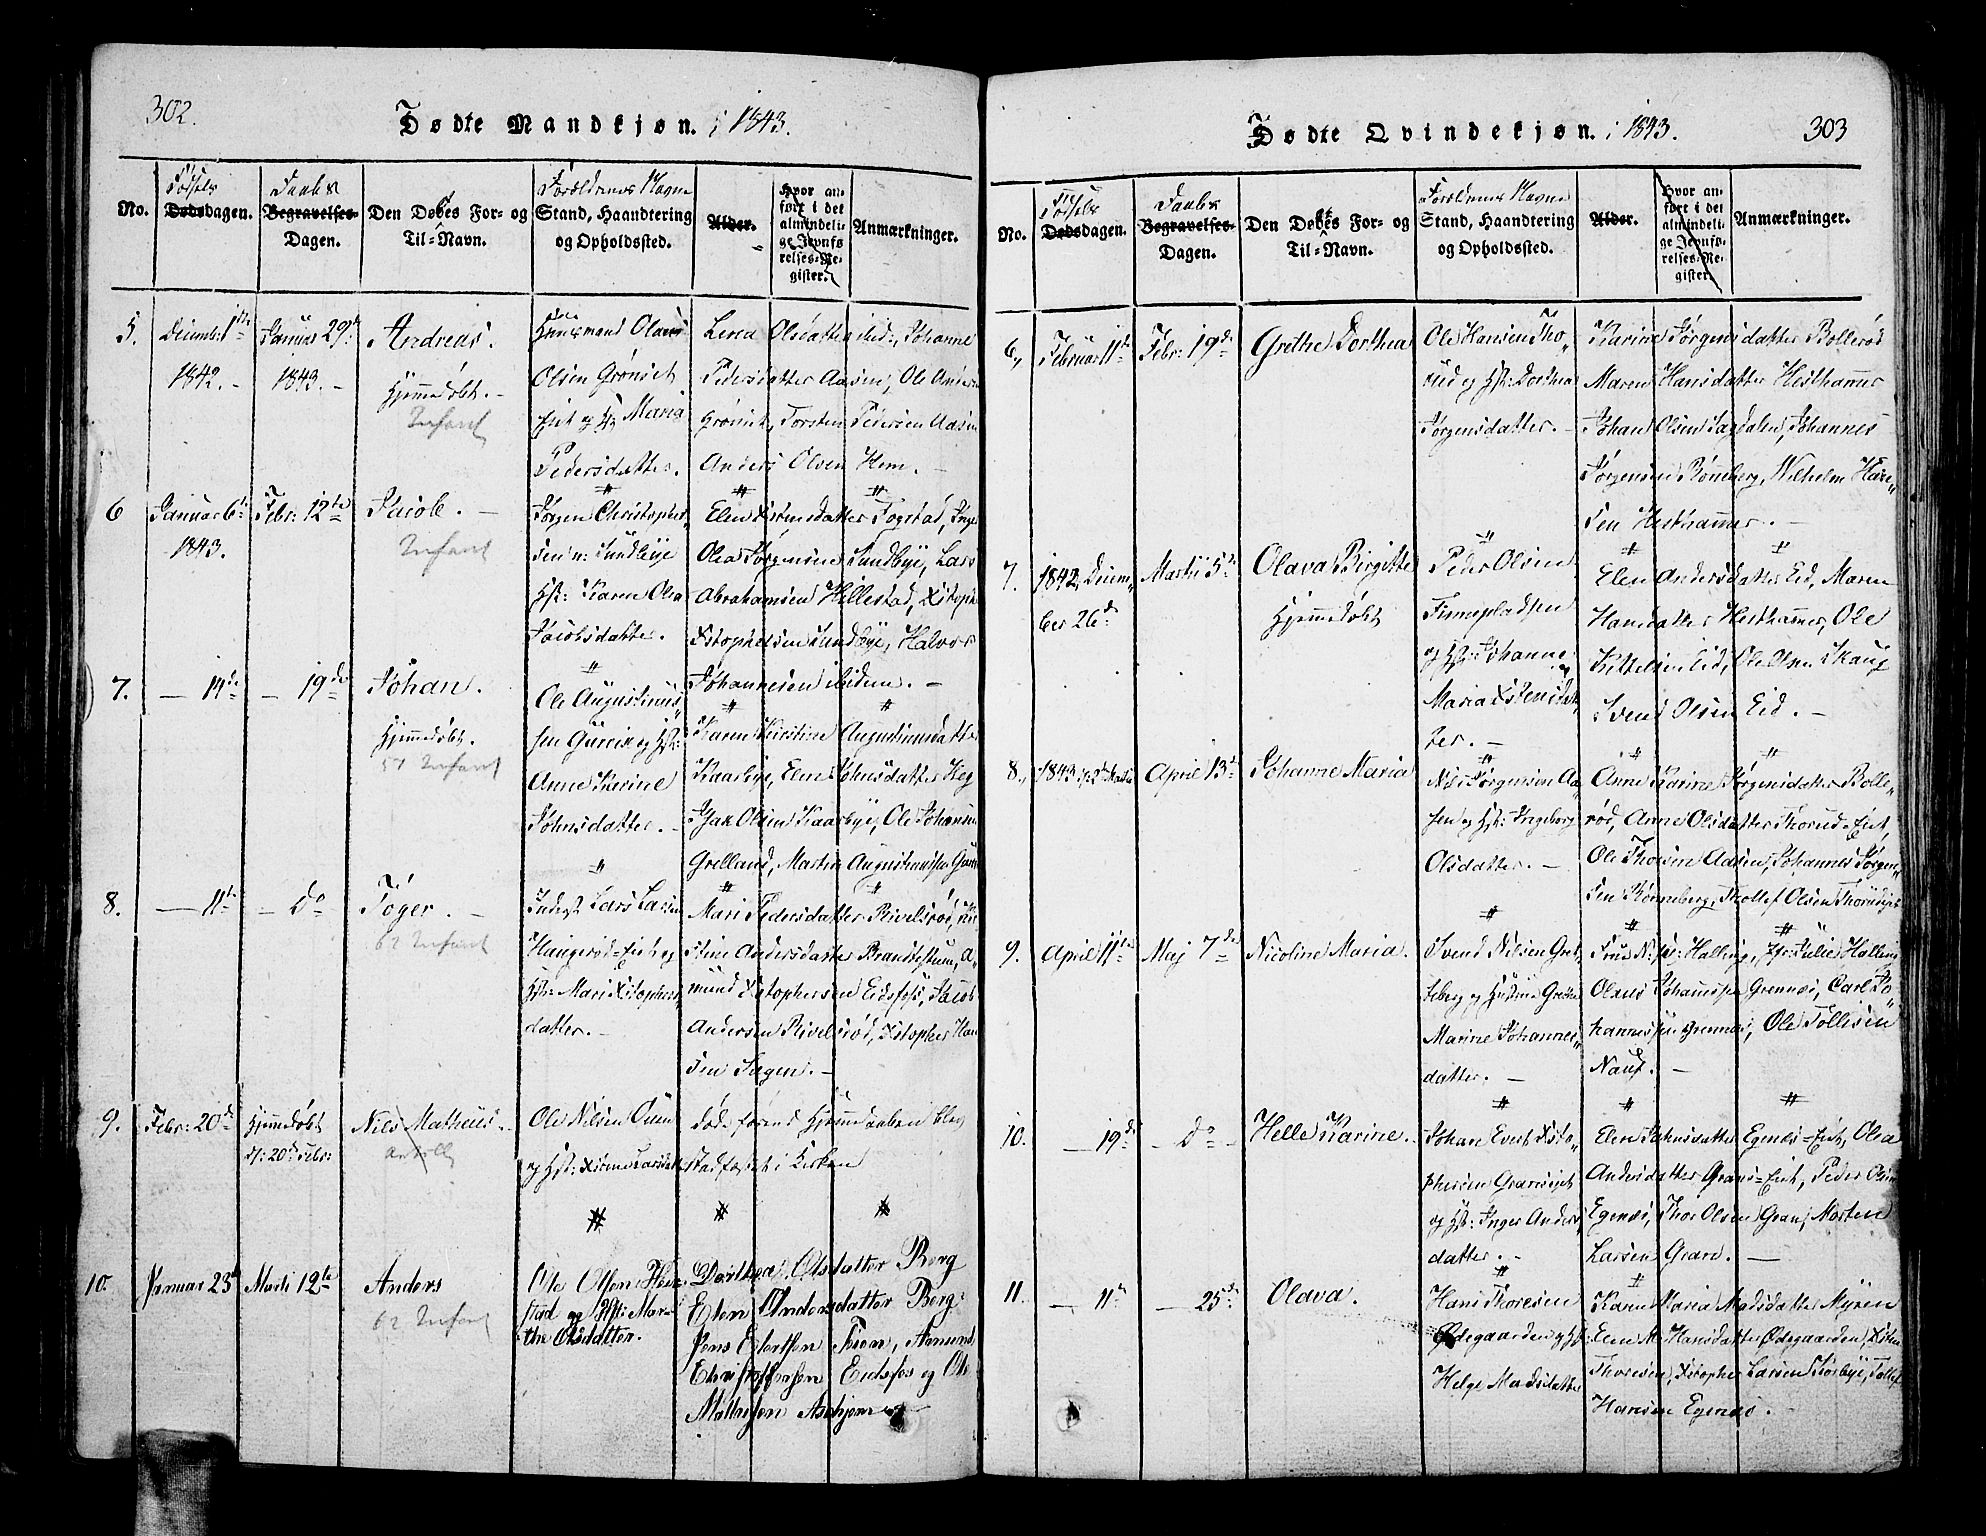 302.
Dødte Mandkjøn. i 1843.
No.
Fødsels
Dødsdagen.
Daabs
Begravelses-
Dagen.
Den Døbtes For- og
Til-Navn.
Forældrenes Nagne
Stand, Haandtering
og Opholdssted.
Alder.
Hvor an-
ført i det
almindeli-
ge Jevnfø-
relses-Re-
gister.
Anmærkninger.
5.
Decembr: 1ste
1842. -
Januar 29de
1843. -
Andreas.
Hjemmedøbt. -
Infant
Huusmand Olaus
Olsen Grønset
Eiet og H: Maria
Pedersdatter.
Lerea Olsdatter ibid:, Johanne
Pedersdatter Aasen, Ole Anders
Grønset, Torsten Pedersen Aasen
Anders Olsen Hem. -
6
Januar 6te
1843.
Febr: 12te
Jacob. -
Infant
Jørgen Christopher
sen n: Sundbye
Hst: Karen Olea
Jacobsdatter.
Elen Xstensdatter Fogstad, Inge
Olea Jørgensen Sundbye, Lars
Abrahamsen Hillestad, Xstopher
Xstophersen Sundbye, Halvor
Johannesen ibidem. -
7.
— 14de
— 19de
Johan.
Hjemmedøbt.
51 Infant
Ole Augustinus
sen Gurrix og Hst:
Anne Karine
Johnsdatter. -
Karen Kirstine Augustinusdatter
Kaarbye, Elen Johnsdatter Teg
Isak Olsen Kaarbye, Ole Johannes
Grelland, Martin Augustinussen
8.
— 11te
— Do
Tøger. -
62 Infant
Inderst Lars Larsen
Haugerød-Eiet og
Hst: Mari Xstophers
datter. -
Mari Pedersdatter Rivelsrød,
Stine Andersdatter Brandtestum, A-
mund Xstophersen Eidsfoss, Jacob
Andersen Rivelsrød, Xstopher Han
sen Sagen. -
9.
Febr: 20de
Hjemmedøbt
d: 20de Febr:
Nils Mathias.
Ole Nilsen
og Hst:
døde førend Hjemmedaaben blev
stadfæstet i Kirken
10.
Januar 23de
Marti 12te
Anders
62 Infant
Ole Olsen Hem
stad og Hst: Mar-
the Olsdatter.
Dorthea Olsdatter Berg
Elen Andersdatter Berg
Jens Elertsen Foen, Amund
Christophersen Eidsfos og Ole
Mathisen Askjem
Dødte Qvindekjøn. i 1843.
303
No.
Fødsels
Dødsdagen.
Daabs
Begravelses-
Dagen.
Den Døbtes For- og
Til-Navn.
Forældrenes Nagne
Stand, Haandtering
og Opholdssted.
Alder.
Hvor an-
ført i det
almindeli-
ge Jevnfø-
relses-Re-
gister.
Anmærkninger.
6.,
Februar 11te
Febr: 19de
Grethe Dorthea
Ole Hansen Tho-
rud og Hst: Dorthea
Jørgensdatter. -
Karine Jørgensdatter Bollerød
Maren Hansdatter Hesthammer
Johan Olsen Sagdalen, Johannes
Jørgensen Rønneberg, Wilhelm Han-
sen Hesthammer. -
7.
1842, Decem-
ber 26de
Martii 5te
Olava Birgitte
Hjemmedøbt
Peder Olsen
Finnepladsen
og Hst: Johanne
Maria Xstensdat-
ter. -
Elen Andersdatter Eid, Maren
Hansdatter Hesthammer, Ole
Kittelsen Eid, Ole Olsen Skaug
Svend Olsen Eid. -
8.,
April 13de
Johanne Maria
Nils Jørgensen Aa-
sen og Hst: Ingeborg
Olsdatter. -
Anne Karine Jørgensdatter Bolle-
rød, Anne Olsdatter Thorud-Eiet,
Ole Thorsen Aasen, Johannes Jørgen-
sen Rønneberg, Thollef Olsen Thorudeiet
9.
April 11te
Maj 7de
Nicoline Maria.
Svend Nilsen Gret-
teberg og Hustrue Grethe
Marine Johannes-
datter. -
Frue Halling, Julie Halling
Olaus Johannessen Grennes, Carl Jo-
hannessen Grennes, Ole Tollesen
Nauf. -
10.
— 19de
— Do -
Helle Karine.
Johan Evert Xsto-
phersen Graneiet
og Hst: Inger Anders
datter. -
Elen Johnsdatter Egenes-Eiet, Olea
Andersdatter Grans-Eiet, Peder Olsen
Egenes, Thor Olsen Gran, Morten
Larsen Gran. —
11.
— 11te
— 25de
Olava.
Hans Thoresen
Ødegaarden og Hst:
Helge Madsdatter
Karen Maria Madsdatter Myren
Elen M. Hansdatter Ødegaarden,
Thoresen, Xstopher Larsen Kaarbye, Tollef
Hansen Egenes. -